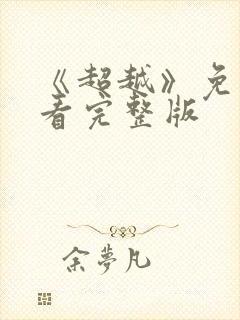 《超越》免
看完整版
余夢凡